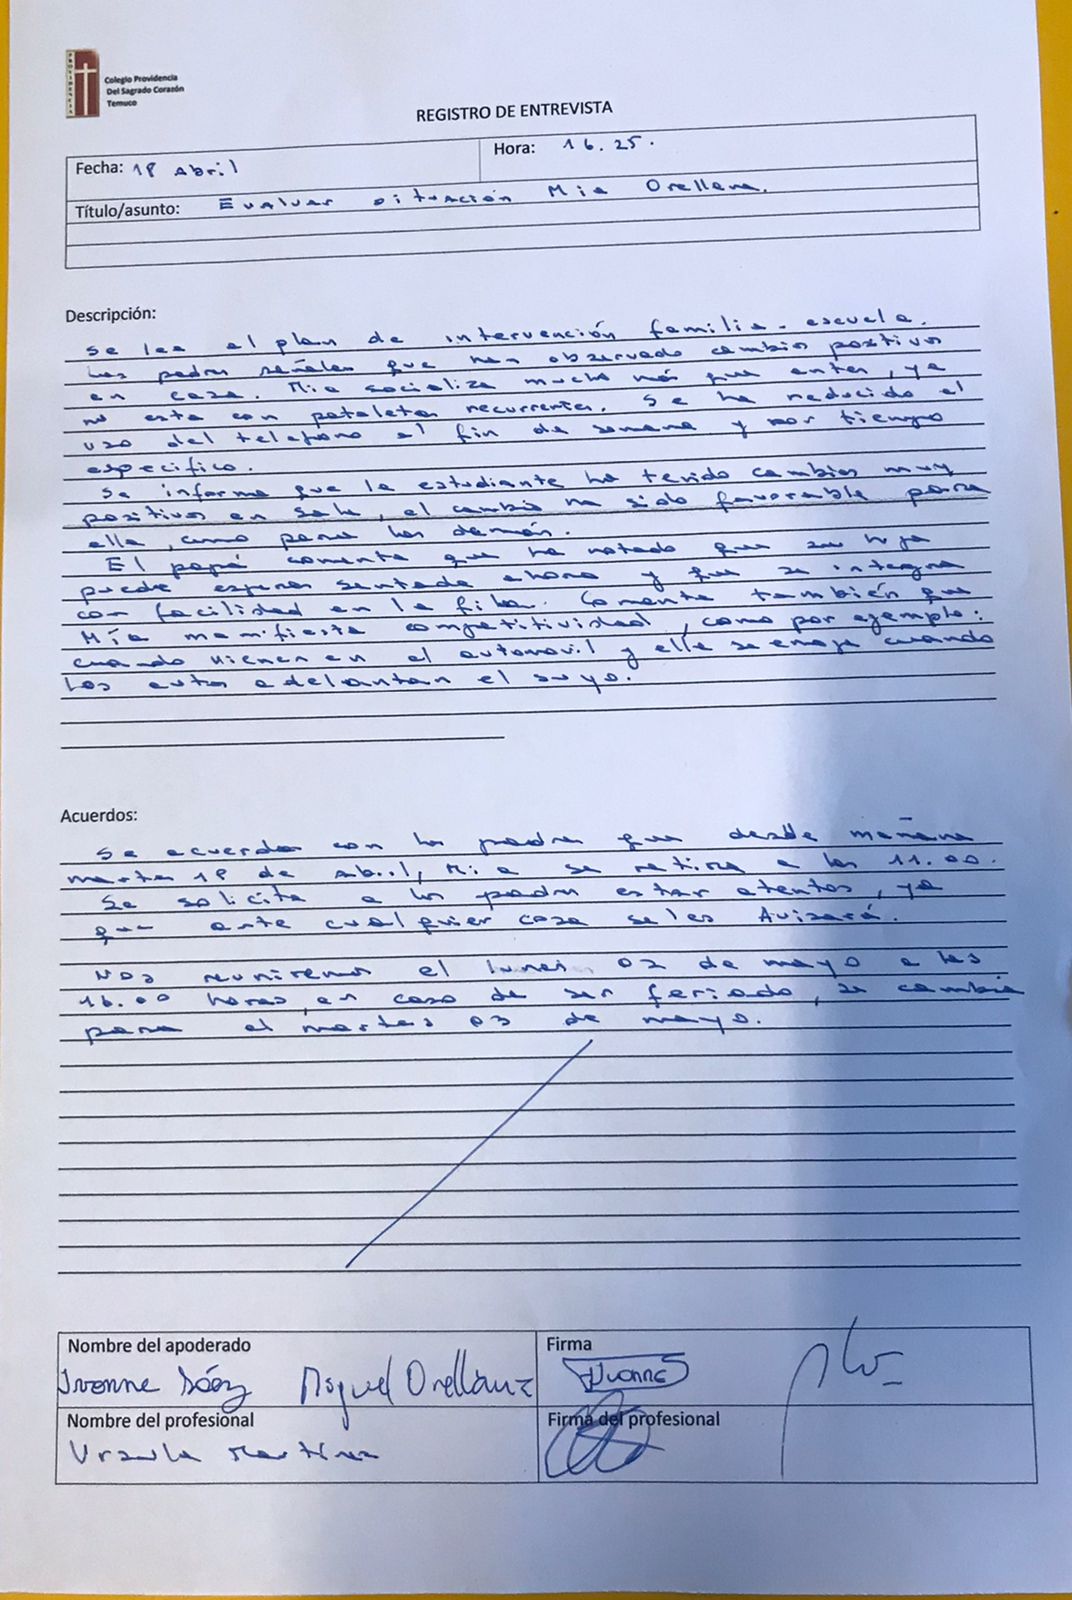 PROVIDENCIA
Colegio Providencia
Del Sagrado Corazón
Temuco
REGISTRO DE ENTREVISTA
Fecha: 18 Abril
Hora: 16.25.
Título/asunto: Evaluar situación Mia Orellana.
Descripción:
Se lee el plan de intervención familia-escuela.
Los padres señalan que han observado cambios positivos
en casa. Mia socializa mucho más que antes, ya
no esta con pataletas recurrentes. Se ha reducido el
uso del telefono al fin de semana y por tiempo
especifico.
Se informa que la estudiante ha tenido cambios muy
positivos en sala, el cambio ha sido favorable para
ella, como para los demás.
El papá comenta que ha notado que su hija
puede esperar sentada ahora y que se integra
con facilidad en la fila. Comenta también que
Mía manifiesta competitividad, como por ejemplo:
cuando vienen en el automovil y ella se enoja cuando
los autos adelantan el suyo.
Acuerdos:
Se acuerda con los padres que desde mañana
martes 19 de abril, Mia se retira a las 11.00.
Se solicita a los padres estar atentos, ya
que ante cualquier cosa se les Avisará.
Nos reuniremos el lunes 02 de mayo a las
16.00 horas, en caso de ser feriado, se cambia
para el martes 03 de mayo.
Nombre del apoderado
Firma
Ivonne Sáez Miguel Orellana
Ivonne S
Nombre del profesional
Firma del profesional
Ursula Martínez